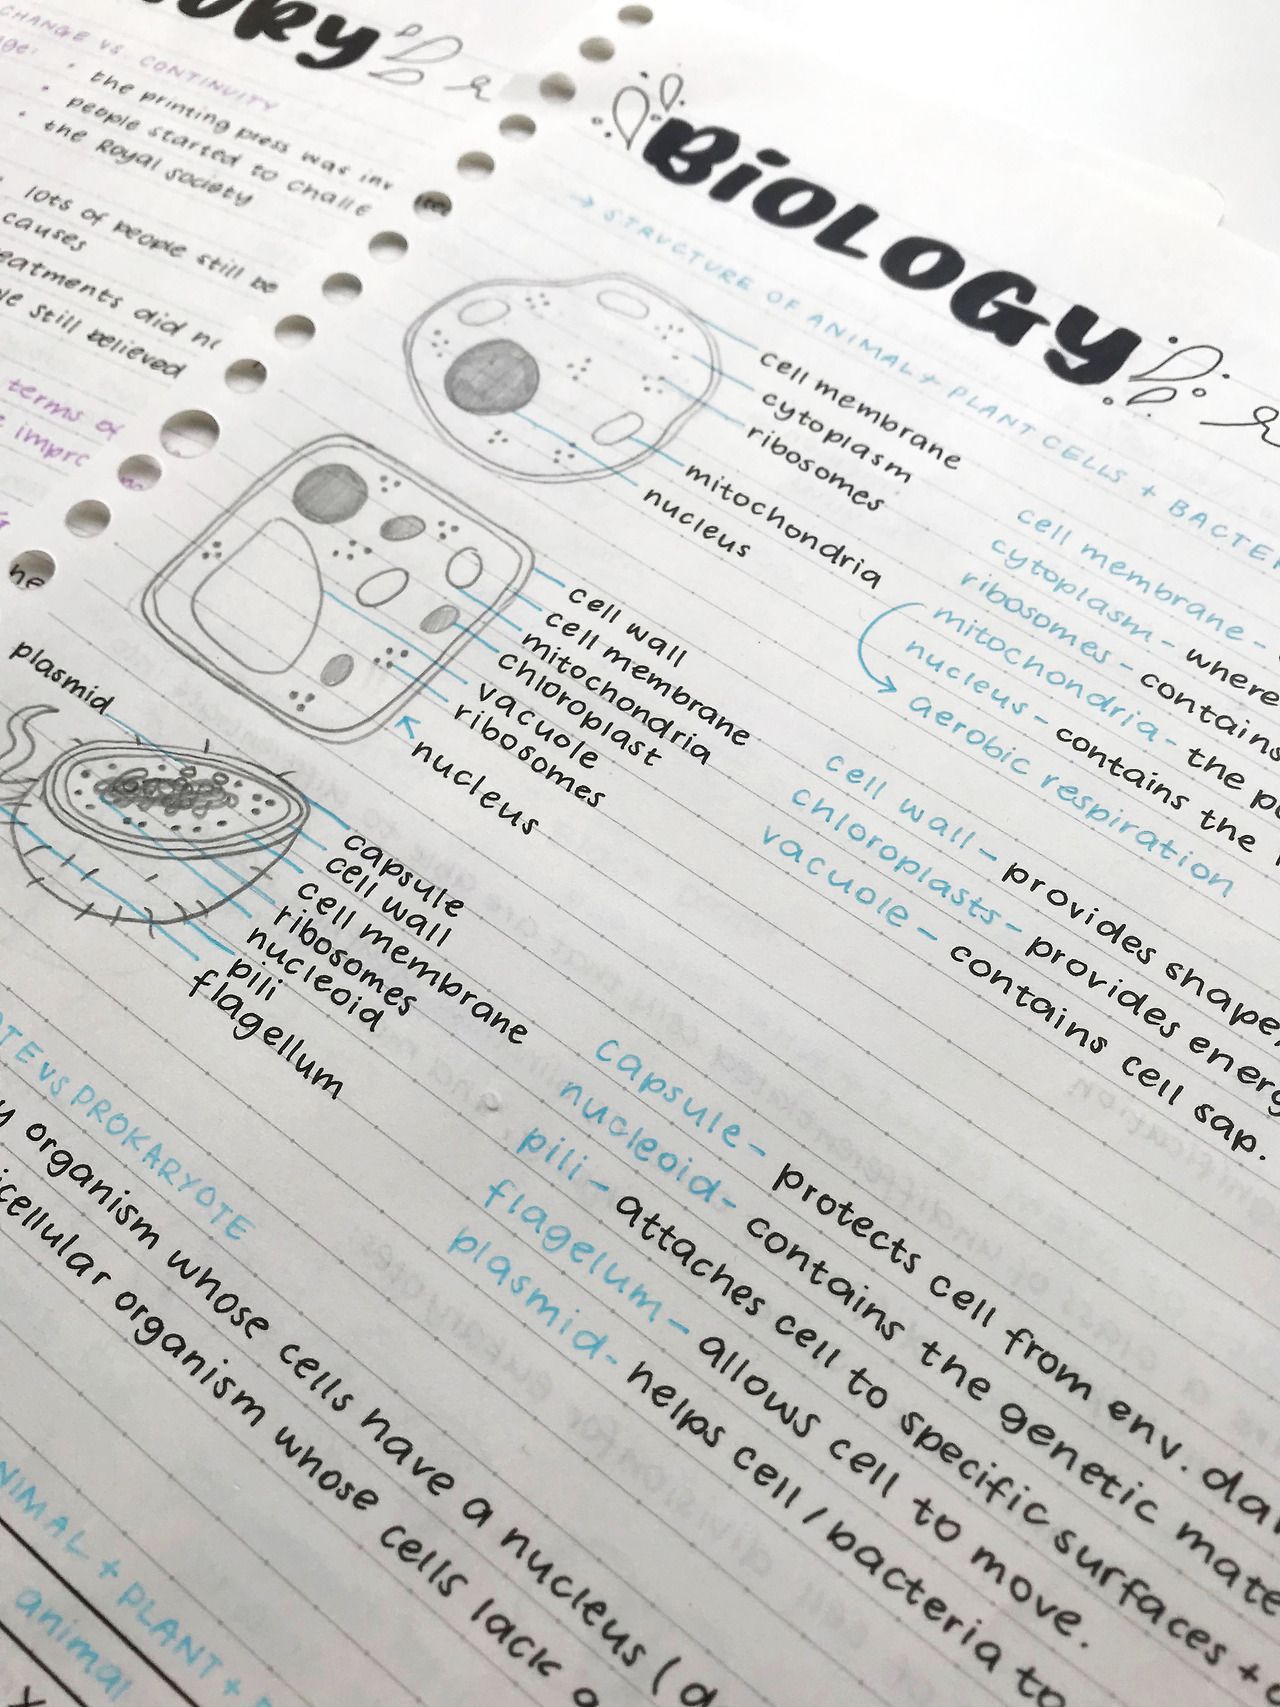 CHANGE vs. CONTINUITY
• the printing press was inv
• people started to challe
• the Royal Society
lots of people still be
causes
eatments did no
le still believed
terms of
impro
BiOLOGY
→ STRUCTURE OF ANIMAL + PLANT CELLS + BACTE
cell membrane
cytoplasm
ribosomes
mitochondria
nucleus
cell wall
cell membrane
mitochondria
chloroplast
vacuole
ribosomes
nucleus
plasmid
capsule
cell wall
cell membrane
ribosomes
nucleoid
pili
flagellum
cell membrane -
cytoplasm - where
ribosomes - contains
mitochondria - the p
nucleus - contains the
aerobic respiration
cell wall - provides shape,
chloroplasts - provides energ
vacuole - contains cell sap.
capsule - protects cell from env. da
nucleoid - contains the genetic mate
pili - attaches cell to specific surfaces +
flagelum - allows cell to move.
plasmid - helps cell/bacteria to
OTE VS PROKARYOTE
y organism whose cells have a nucleus (
icellular organism whose cells lack a
NIMAL + PLANT +
animal